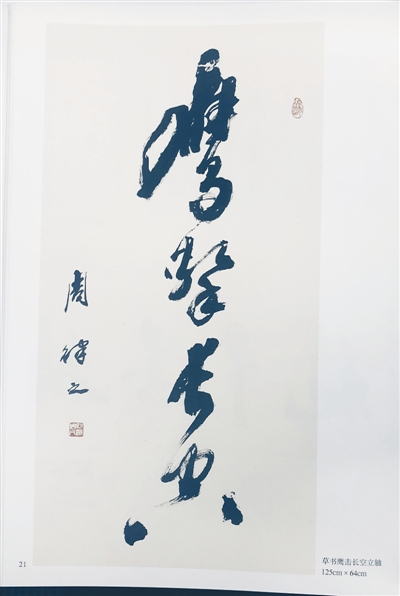 鷹擊長空
周 之
21
草书鹰击长空立轴
125cm×64cm